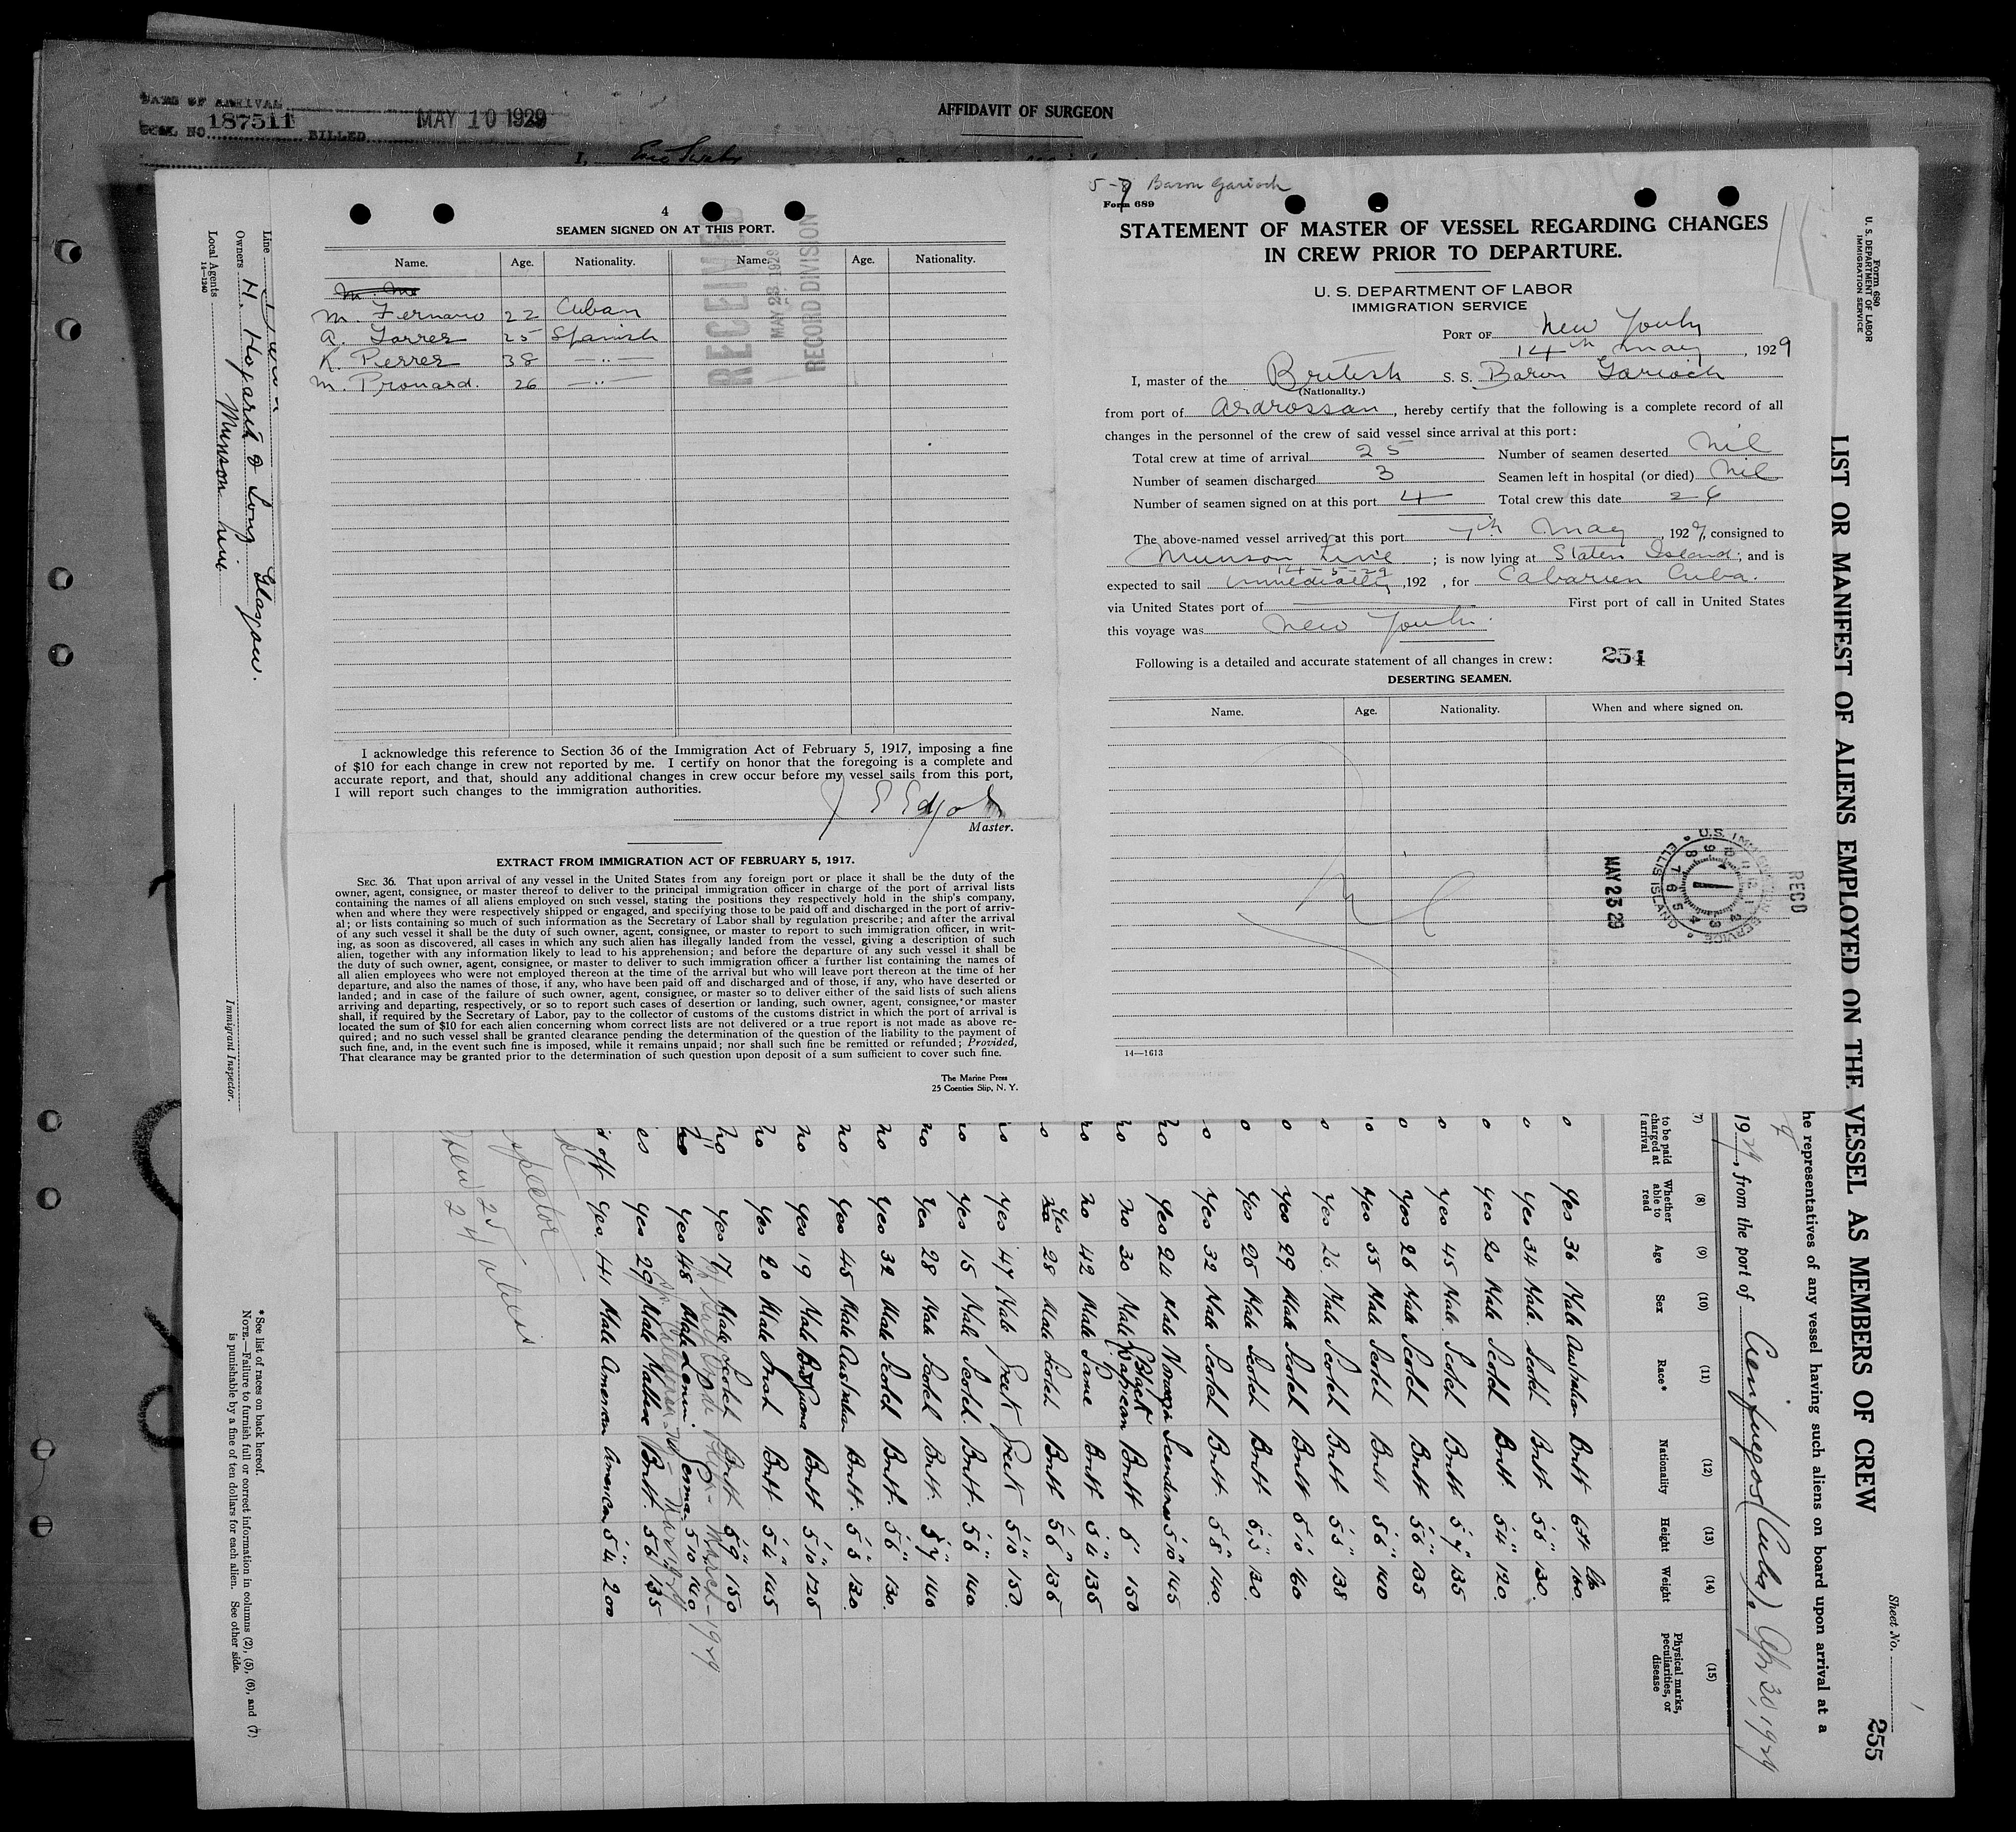 DATE OF ARRIVAL
SERL NO. 187511 BILLED MAY 10 1929
AFFIDAVIT OF SURGEON
I,
4
SEAMEN SIGNED ON AT THIS PORT.
Name. Age. Nationality. Name. Age. Nationality.
M. Fernaro 22 Cuban
A. Torres 25 Spanish
K. Perrer 38 —..—
M. Pronard. 26 —..—
RECEIVED
MAY 23 1929
RECORD DIVISION
I acknowledge this reference to Section 36 of the Immigration Act of February 5, 1917, imposing a fine
of $10 for each change in crew not reported by me. I certify on honor that the foregoing is a complete and
accurate report, and that, should any additional changes in crew occur before my vessel sails from this port,
I will report such changes to the immigration authorities.
Master.
EXTRACT FROM IMMIGRATION ACT OF FEBRUARY 5, 1917.
SEC. 36. That upon arrival of any vessel in the United States from any foreign port or place it shall be the duty of the
owner, agent, consignee, or master thereof to deliver to the principal immigration officer in charge of the port of arrival lists
containing the names of all aliens employed on such vessel, stating the positions they respectively hold in the ship's company,
when and where they were respectively shipped or engaged, and specifying those to be paid off and discharged in the port of arriv-
al; or lists containing so much of such information as the Secretary of Labor shall by regulation prescribe; and after the arrival
of any such vessel it shall be the duty of such owner, agent, consignee, or master to report to such immigration officer, in writ-
ing, as soon as discovered, all cases in which any such alien has illegally landed from the vessel, giving a description of such
alien, together with any information likely to lead to his apprehension; and before the departure of any such vessel it shall be
the duty of such owner, agent, consignee, or master to deliver to such immigration officer a further list containing the names of
all alien employees who were not employed thereon at the time of the arrival but who will leave port thereon at the time of her
departure, and also the names of those, if any, who have been paid off and discharged and of those, if any, who have deserted or
landed; and in case of the failure of such owner, agent, consignee, or master so to deliver either of the said lists of such aliens
arriving and departing, respectively, or so to report such cases of desertion or landing, such owner, agent, consignee, or master
shall, if required by the Secretary of Labor, pay to the collector of customs of the customs district in which the port of arrival is
located the sum of $10 for each alien concerning whom correct lists are not delivered or a true report is not made as above re-
quired; and no such vessel shall be granted clearance pending the determination of the question of the liability to the payment of
such fine, and, in the event such fine is imposed, while it remains unpaid; nor shall such fine be remitted or refunded; Provided,
That clearance may be granted prior to the determination of such question upon deposit of a sum sufficient to cover such fine.
The Marine Press
25 Coenties Slip, N. Y.
5-7 Baron Garioch
Form 689
STATEMENT OF MASTER OF VESSEL REGARDING CHANGES
IN CREW PRIOR TO DEPARTURE.
U. S. DEPARTMENT OF LABOR
IMMIGRATION SERVICE
PORT OF New York
14th May, 1929
I, master of the British S. S. Baron Garioch
(Nationality.)
from port of Ardrossan, hereby certify that the following is a complete record of all
changes in the personnel of the crew of said vessel since arrival at this port:
Total crew at time of arrival 25 Number of seamen deserted Nil
Number of seamen discharged 3 Seamen left in hospital (or died) Nil
Number of seamen signed on at this port 4 Total crew this date 26
The above-named vessel arrived at this port 7th May, 1929, consigned to
Munson Line; is now lying at Staten Island; and is
14-5-29
expected to sail immediately, 192 , for Cabarien Cuba.
via United States port of First port of call in United States
this voyage was New York.
Following is a detailed and accurate statement of all changes in crew: 254
DESERTING SEAMEN.
Name. Age. Nationality. When and where signed on.
MAY 23 29
U.S. IMMIGRATION SERVICE
ELLIS ISLAND
RECD
14—1613
Line
Owners H. Hogarth & Sons Glasgow.
Local Agents Munson Line
14-1240
Immigrant Inspector.
*See list of races on back hereof.
NOTE.—Failure to furnish full or correct information in columns (2), (5), (6), and (7)
is punishable by a fine of ten dollars for each alien. See other side.
Form 680
U. S. DEPARTMENT OF LABOR
IMMIGRATION SERVICE
LIST OR MANIFEST OF ALIENS EMPLOYED ON THE VESSEL AS MEMBERS OF CREW
Sheet No.
255
he representatives of any vessel having such aliens on board upon arrival at a
1929, from the port of Cienfuegos (Cuba). Apr 30, 1929
(7) (8) (9) (10) (11) (12) (13) (14) (15)
to be paid charged at arrival Whether able to read Age Sex Race* Nationality Height Weight Physical marks, peculiarities, or disease
o Yes 36 Male Australian Britt 6ft 160 lb
o Yes 34 Male Scotch Britt 5'6" 130
o Yes 20 Male Scotch Britt 5'4" 120
o Yes 45 Male Scotch Britt 5'7" 135
o Yes 26 Male Scotch Britt 5'6" 135
o Yes 53 Male Scotch Britt 5'6" 140
o Yes 26 Male Scotch Britt 5'5" 138
o Yes 29 Male Scotch Britt 5'10 160
o Yes 25 Male Scotch Britt 5'5" 130
o Yes 32 Male Scotch Britt 5'8" 140
no Yes 24 Male Norwegn Scandinav 5'10" 145
no no 30 Male Black African Britt 6' 150
no no 42 Male Same Britt 5'4" 135
o Yes 28 Male Scotch Britt 5'6" 136
no Yes 47 Male Greek Greek 5'10" 150
no Yes 15 Male Scotch Britt 5'6" 140
no Yes 28 Male Scotch Britt 5'7" 140
no Yes 32 Male Scotch Britt 5'6" 130
no Yes 45 Male Australian Britt 5'5" 130
no Yes 19 Male Brit Guiana Britt 5'10" 125
no Yes 20 Male Irish Britt 5'4" 145
no Yes 17 Male Scotch Britt 5'9" 150
Yes 48 Male 5'10 140
es Yes 29 Male Maltese Britt 5'6" 135
off Yes 41 Male American American 5'4" 200
25
24